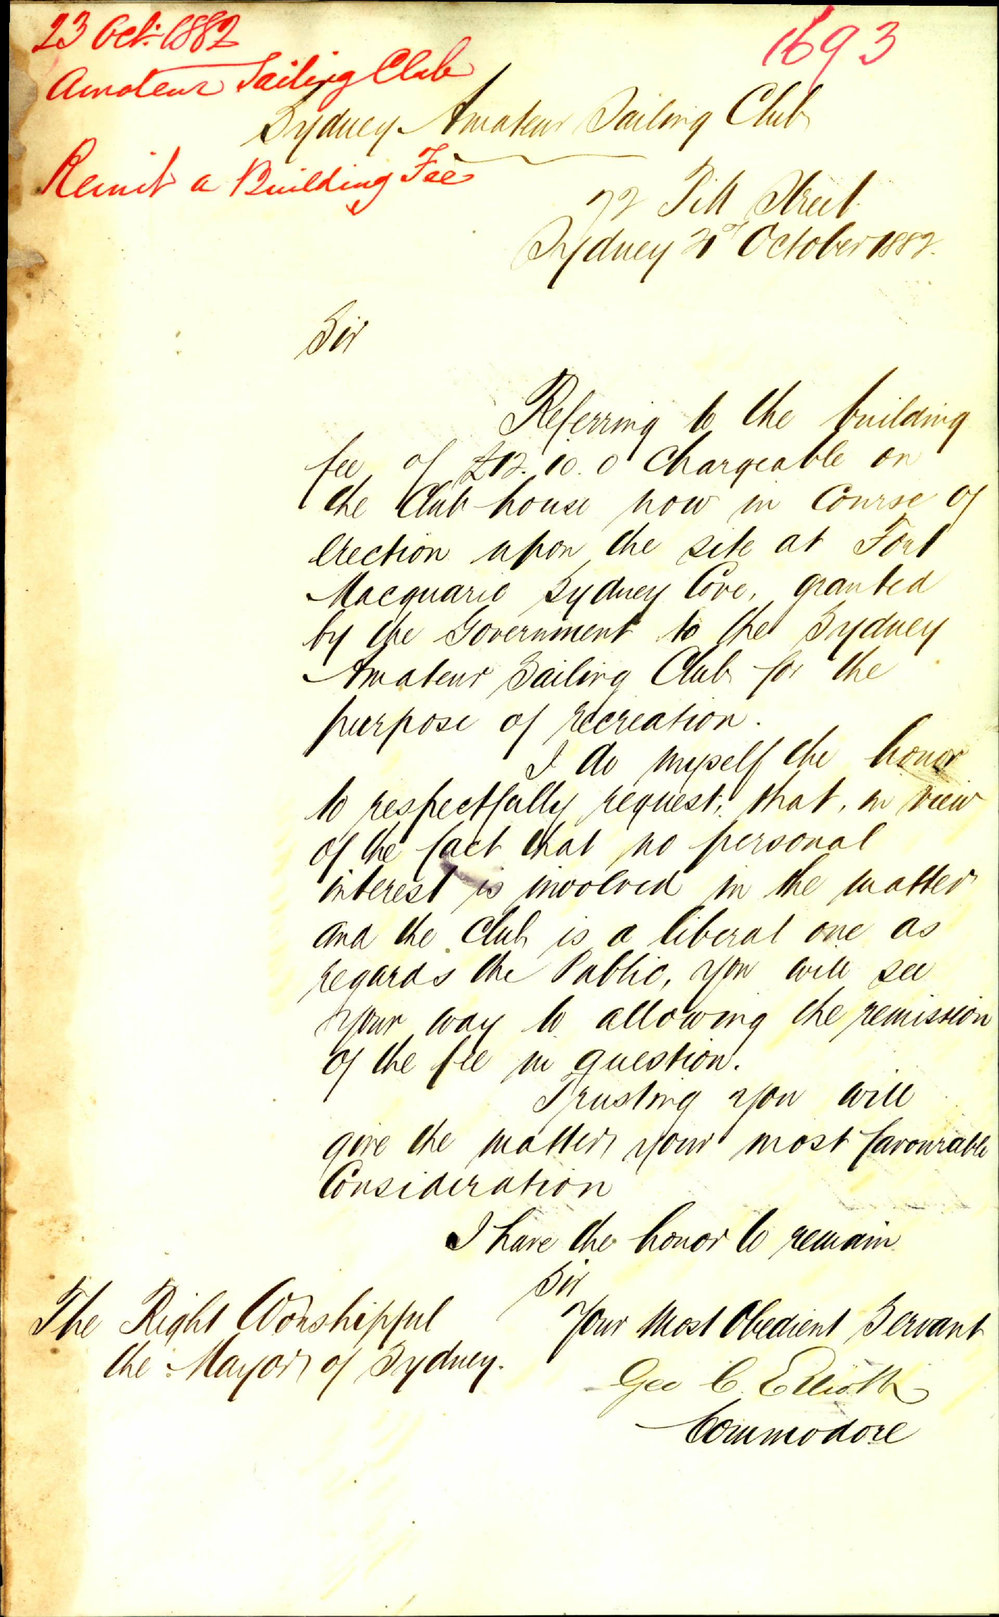 23 Oct: 1882
1693
Amateur Sailing Club
Sydney Amateur Sailing Club
Remit a Building Fee
72 Pitt Street
Sydney 21st October 1882.
Sir
Referring to the building
fee of £12.10.0 chargeable on
the Club-house now in course of
erection upon the site at Fort
Macquarie Sydney Cove, granted
by the Government to the Sydney
Amateur Sailing Club for the
purpose of recreation.
I do myself the honor
to respectfully request, that, in view
of the fact that no personal
interest is involved in the matter
and the Club is a liberal one as
regards the Public, you will see
your way to allowing the remission
of the fee in question.
Trusting you will
give the matter your most favourable
Consideration
I have the honor to remain
Sir
Your Most Obedient Servant
The Right Worshipful
the Mayor of Sydney.
Geo C. Elliott
Commodore